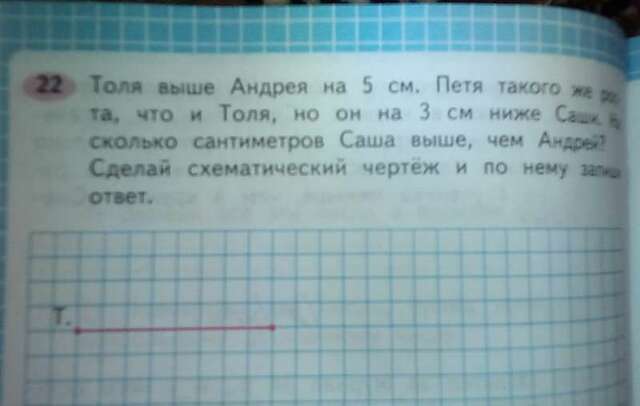 22 Толя выше Андрея на 5 см. Петя такого же рос
та, что и Толя, но он на 3 см ниже Саши. На
сколько сантиметров Саша выше, чем Андрей?
Сделай схематический чертёж и по нему запиши
ответ.
Т.